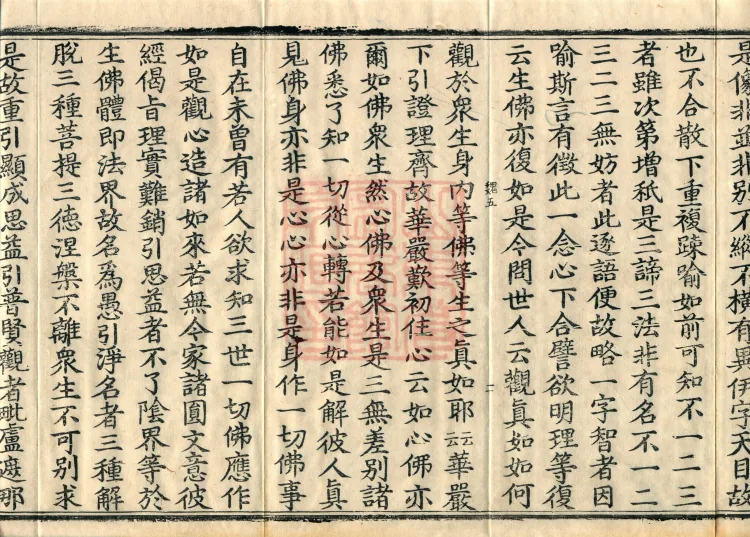 是像非並非別不縱不橫有異伊字天目故
也不合散下重複疎喻如前可知不一二三
者雖次第增秖是三諦三法非有名不一二
三二三無妨者此逐語便故略一字智者因
喻斯言有徵此一念心下合譬欲明理等復
云生佛亦復如是今問世人云觀真如如何
五
觀於衆生身内等佛等生之眞如耶云云華嚴
下引證理齊故華嚴歎初住心云如心佛亦
爾如佛衆生然心佛及衆生是三無差別諸
佛悉了知一切從心轉若能如是解彼人眞
見佛身亦非是心心亦非是身作一切佛事
自在未曾有若人欲求知三世一切佛應作
如是觀心造諸如來若無今家諸圓文意彼
經偈旨理實難銷引思益者不了陰界等於
生佛體即法界故名爲愚引淨名者三種解
脫三種菩提三德涅槃不離衆生不可別求
是故重引顯成思益引普賢觀者毗盧遮那